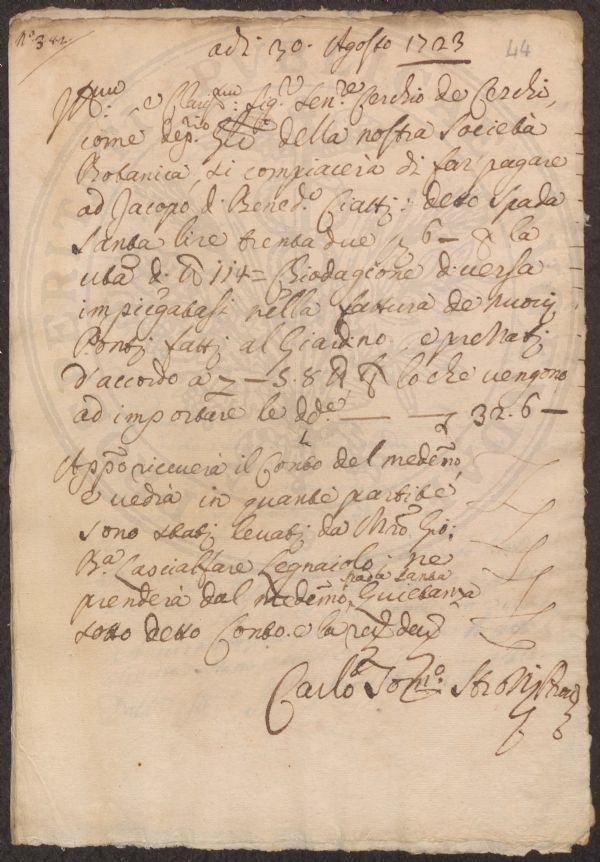 N.º 342.
adì 30. Agosto 1723
44
Ill.mo e Clariss.mo Sig.r Sen.re Cerchio de Cerchi,
come dep.rio della nostra Società
Botanica, si compiacerà di far pagare
ad Jacopo d. Bened.o Ciatti: detto Spada
santa lire trenta due 6 — la
114 = Chiodagione diversa
impiegatasi nella fattura de nuovi
Ponti fatti al Giardino, e
d'accordo a — 5.8 lo che vengono
ad importare le dd.e — 32.6 —
App.o riceverà il Conto del medemo
e vedrà in quante partite
sono stati levati da Mro. Gio:
B.a Cascialfare Legnaiolo; ne
prenderà dal medemo Spada Santa
sotto detto Conto e la
Carlo